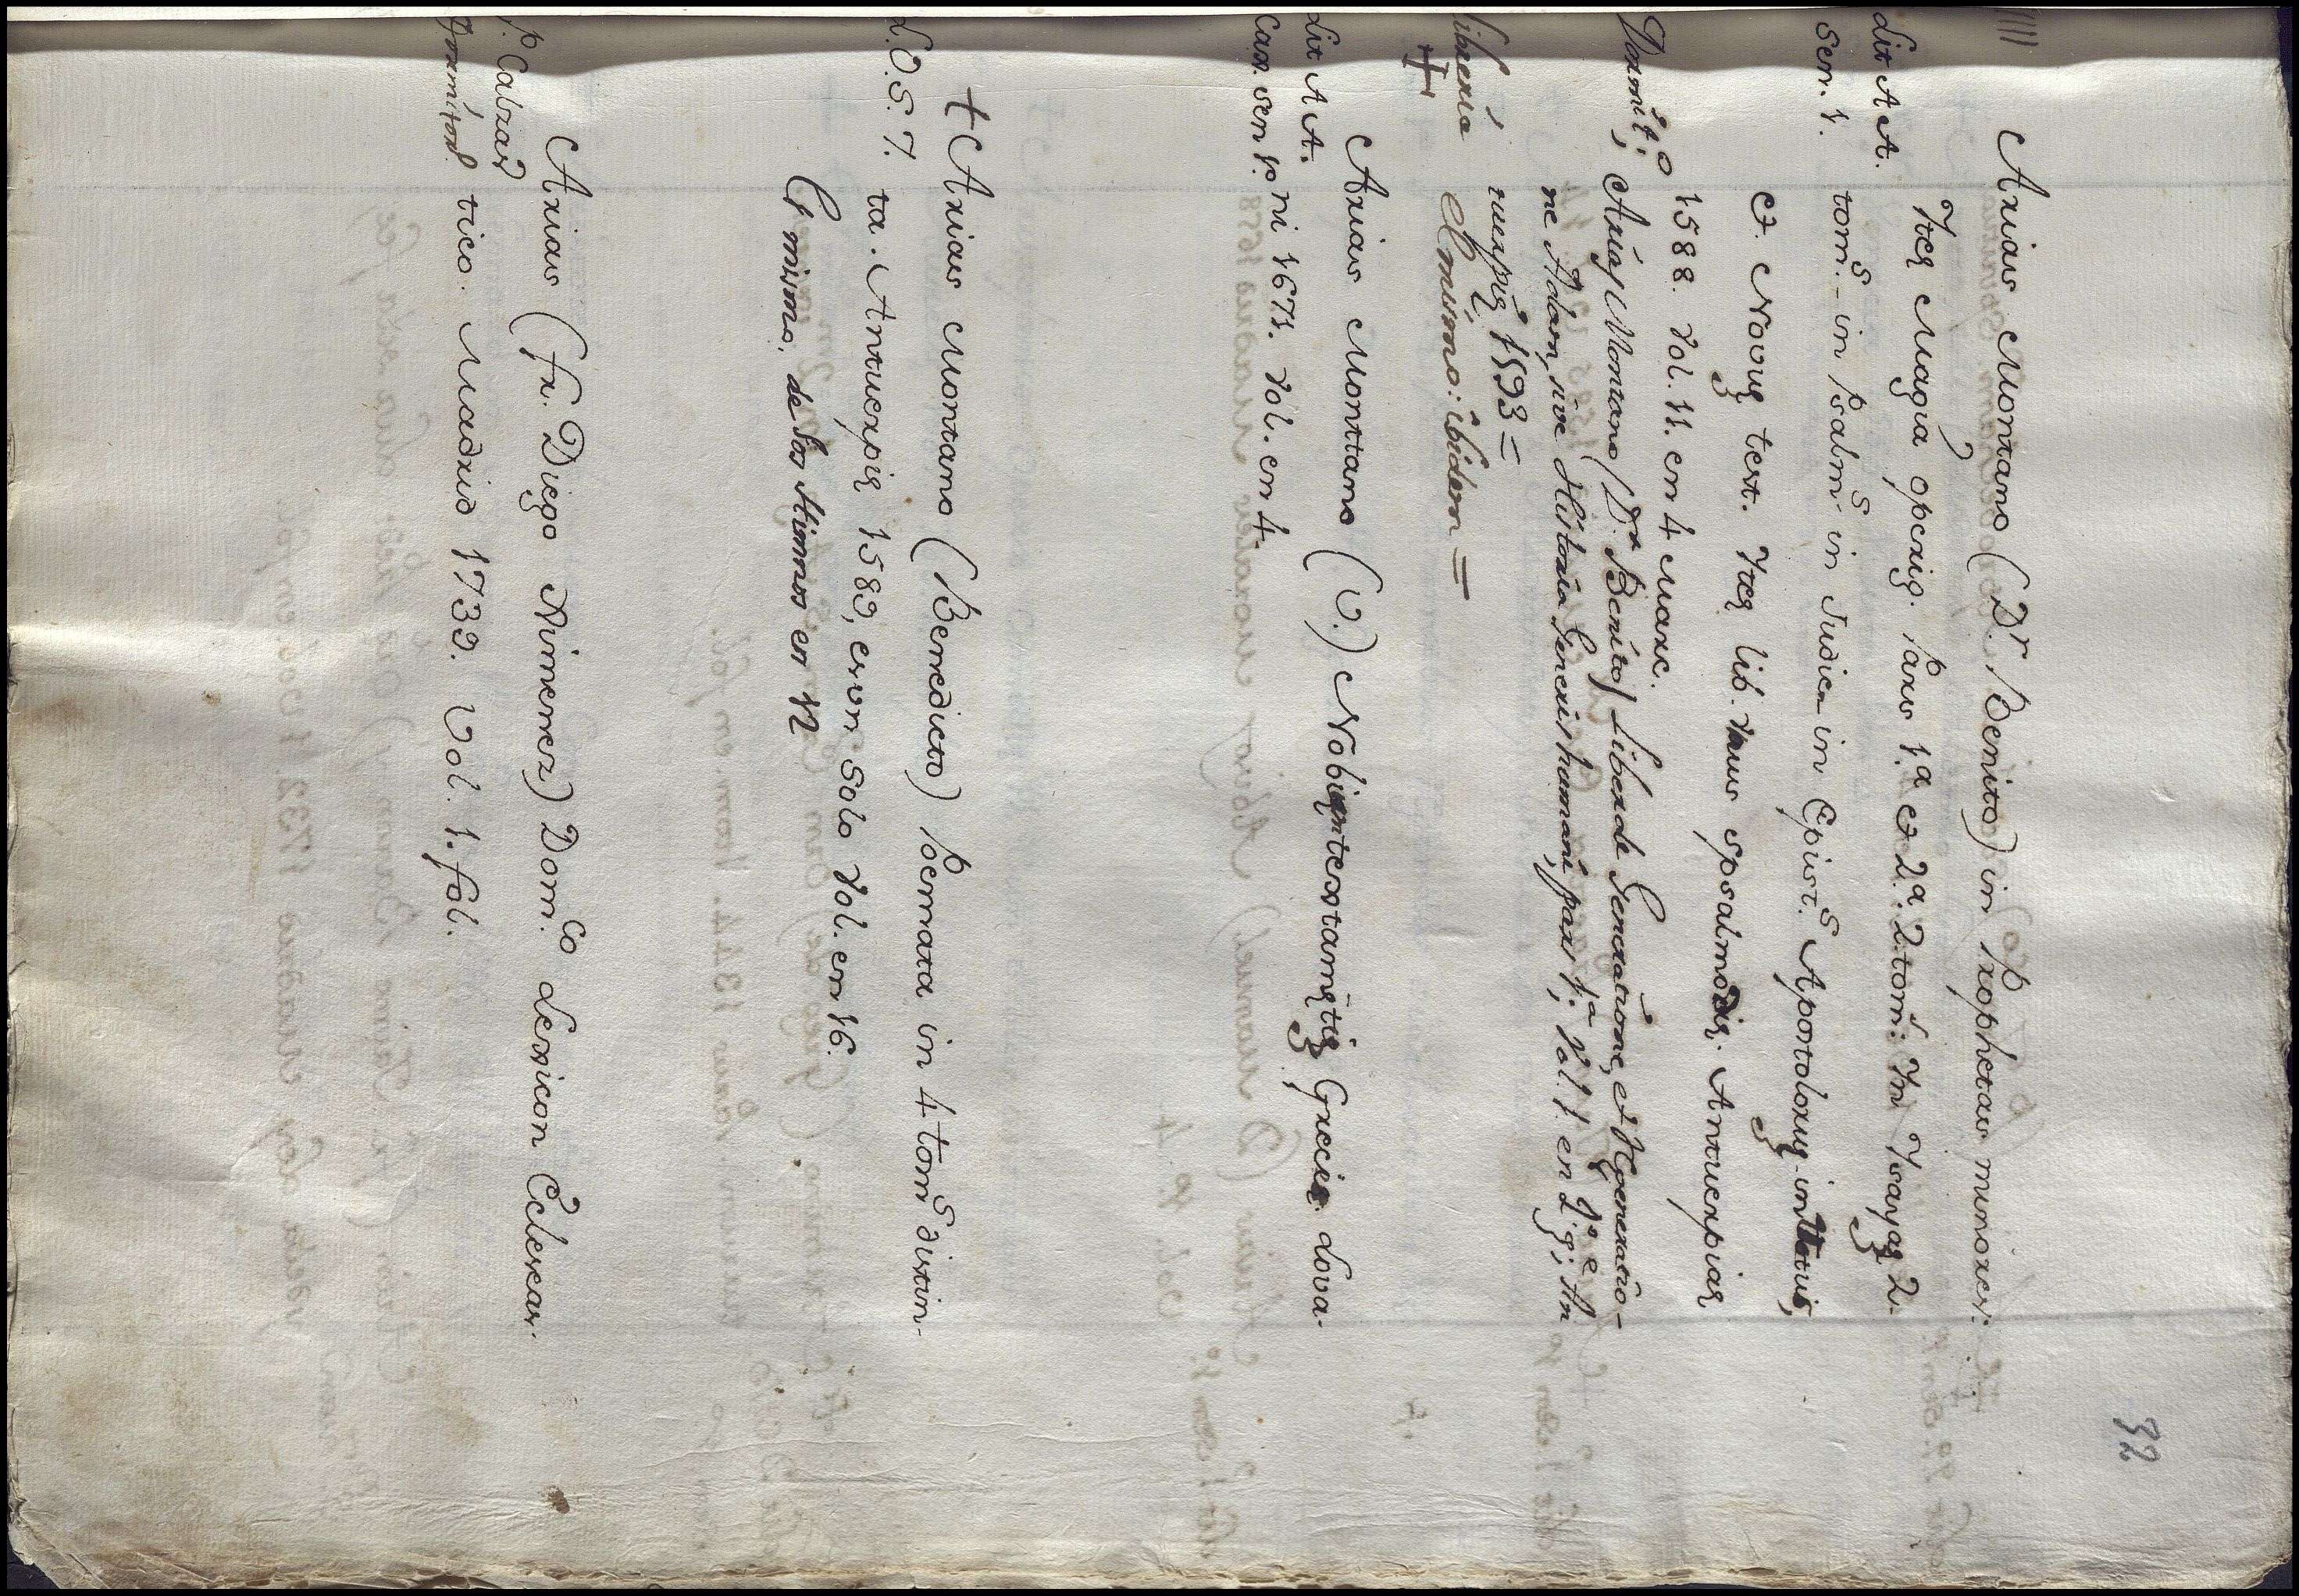 32
Arias Montano (Dr. Benito) in Prophetas minores:
Item Magna operis. Pars 1.a et 2.a 2 tom.s In Isayas 2
dit A A.
tom.s - in Psalm.s in Judic - in Epist.s Apostolorum - in
Sen. 1.
et Novum test. Item lib. Psalmodis. Antuerpias
1588. Vol. 11. en 4 Marc.
Dormit.o Arias Montano (Dr Benito) Liber de Generatione, et Regeneratio-
ne Adam, sive Historia Generis humani, pars 1.a Vol. 1 en 4.o An
tuerpiȩ 1593 =
Libreria El mismo: ibidem =
Arias Monttano (v.) Nobum testamentum Grecie. Lova-
dit A A.
Cax. sen 1. ni 1671. Vol. en 4.
+ Arias Montano (Benedicto) Poemata in 4 tom.s distin-
L. O. S. 7. ta. Antuerpiȩ 1589, en un solo Vol. en 16.
El mismo, de los Himnos en
Arias (fr. Diego Ximenez) Dom.co Lexicon Eclesias-
P. Cabzas
Dormitor.o tico. Madrid 1739. Vol. 1. fol.